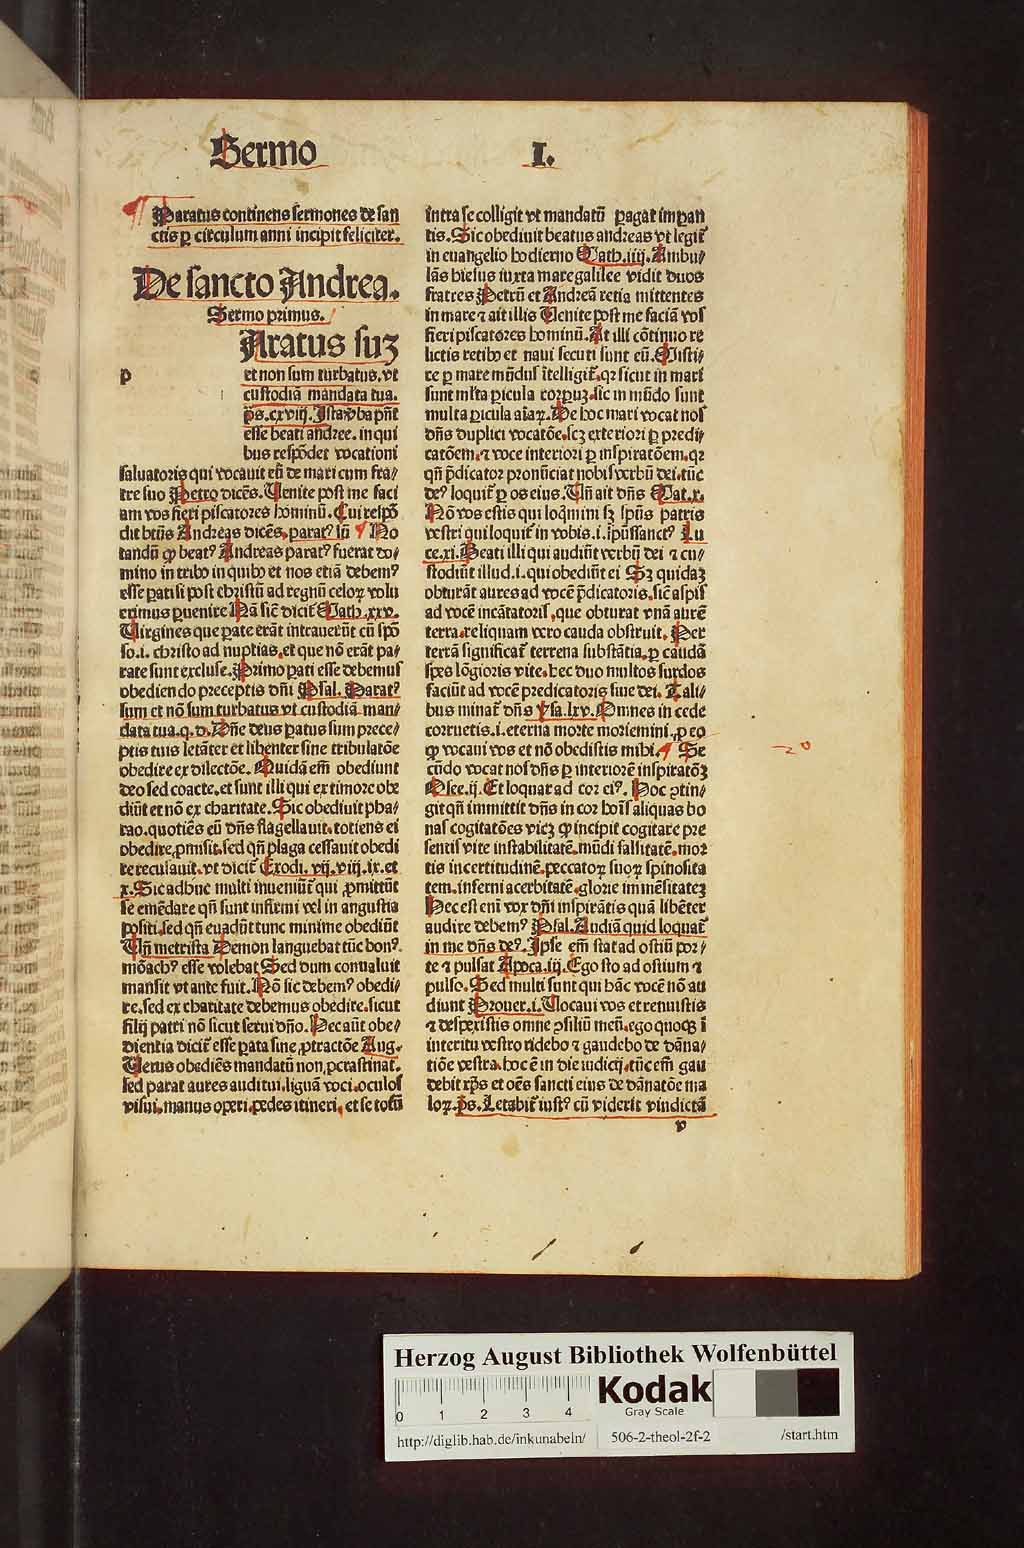 Sermo I.
Paratus continens sermones de san
ctis ꝑ circulum anni incipit feliciter.
De sancto Andrea.
Sermo primus.
p
Aratus suꝫ
et non sum turbatus, vt
custodiā mandata tua.
ps. cxviij. Ista v̓ba pn̄t
esse beati andree. in qui
bus respōdet vocationi
saluatoris qui vocauit eū de mari cum fra/
tre suo Petro dicēs. Venite post me faci
am vos fieri piscatores hominū. Cui respō
dit btūs Andreas dicēs, parat⁹ suꝫ ¶ No
tandū ꝙ beat⁹ Andreas parat⁹ fuerat do/
mino in tribꝰ in quibꝰ et nos etiā debem⁹
esse parati si post christū ad regnū celoꝝ volu
erimus ꝑuenire Nā sic̄ dicit̄ Math. xxv.
Virgines que parate erāt intrauerūt cū spō
so .i. christo ad nuptias, et que nō erāt pa/
rate sunt excluse. Primo parati esse debemus
obediendo preceptis dn̄i Psal. Parat⁹
sum et nō sum turbatus vt custodiā man/
data tua. q. d. Dn̄e deus paratus sum prece/
ptis tuis letāter et libenter sine tribulatōe
obedire ex dilectōe. Quidā em̄ obediunt
deo sed coacte, et sunt illi qui ex timore obe
diūt et nō ex charitate. Sic obediuit pha/
rao. quotiēs eū dn̄s flagellauit, totiens ei
obedire ꝓmisit, sed qn̄ plaga cessauit obedi
re recusauit, vt dicit̄ Exodi. vij. viij. ix. et
x. Sic adhuc multi inueniūt̄ qui ꝓmittūt
se emēdare qn̄ sunt infirmi vel in angustia
positi, sed qn̄ euadūt tunc minime obediūt
Vn̄ metrista Demon languebat tūc bon⁹
mōach⁹ esse volebat Sed dum conualuit
mansit vt ante fuit. Nō sic debem⁹ obedi/
re, sed ex charitate debemus obedire, sicut
filij patri nō sicut serui dn̄o. Hec aūt obe/
dientia dicit̄ esse parata sine ꝓtractōe Aug.
Verus obediēs mandatū non ꝓcrastinat,
sed parat aures auditui, liguā voci, oculos
visui, manus operi, pedes itineri, et se totū
intra se colligit vt mandatū pagat imꝑan
tis. Sic obediuit beatus andreas vt legit̄
in euangelio hodierno Math. iiij. Ambu/
lās hiesus iuxta mare galilee vidit duos
fratres Petrū et Andreā retia mittentes
in mare ⁊ ait illis Venite post me faciā vos
fieri piscatores hominū. At illi cōtinuo re
lictis retibꝰ et naui secuti sunt eū. Misti/
ce ꝑ mare mūdus ītelligit̄, qꝛ sicut in mari
sunt ml̄ta ꝑicula corpuꝫ, sic in mūdo sunt
multa ꝑicula aīaꝝ. De hoc mari vocat nos
dn̄s duplici vocatōe, scꝫ exteriori ꝑ predi/
catōem, ⁊ voce interiori ꝑ inspiratōem, qꝛ
qn̄ p̄dicator pronūciat nobis verbū dei, tūc
de⁹ loquit̄ ꝑ os eius. Vn̄ ait dn̄s Mat. x.
Nō vos estis qui loq̄mini sꝫ spūs patris
vestri qui loquit̄ in vobis .i. ip̄uſſanct⁹ Lu
ce. xi. Beati illi qui audiūt verbū dei ⁊ cu/
stodiūt illud .i. qui obediūt ei Sꝫ quidaꝫ
obturāt aures ad vocē p̄dicatoris, sic̄ aspis
ad vocē incātatoris, que obturat vnā aurē
terra, reliquam vero cauda obstruit. Per
terrā significat̄ terrena substātia, ꝑ caudā
spes lōgioris vite, hec duo multos surdos
faciūt ad vocē predicatoris siue dei. Tali/
bus minat̄ dn̄s Ysa. lxv. Omnes in cede
corruetis .i. eterna morte moriemini, ꝑ eo
ꝙ vocaui vos et nō obedistis mihi. ¶ Se
cūdo vocat nos dn̄s ꝑ interiorē inspiratōꝫ
Osee. ij. Et loquar ad cor ei⁹. Hoc ꝯtin/
git qn̄ immittit dn̄s in cor hoīs aliquas bo
nas cogitatōes vicꝫ ꝙ incipit cogitare pre
sentis vite instabilitatē, mūdi falsitatē, mor
tis incertitudinē, peccatoꝝ suoꝝ spinosita
tem, inferni acerbitatē, glorie immēsitateꝫ
Hec est eni vox dn̄i inspirātis quā libēter
audire debem⁹ Psal. Audiā quid loquat̄
in me dn̄s de⁹. Ipse em̄ stat ad ostiū por/
te ⁊ pulsat Apoca. iij. Ego sto ad ostium ⁊
pulso. Sed multi sunt qui hāc vocē nō au
diunt Prouer. i. Vocaui vos et renuistis
⁊ despexistis omne ꝯsiliū meū, ego quoqꝫ ī
interitu vestro ridebo ⁊ gaudebo de dāna/
tiōe vestra, hoc ē in die iudicij, tūc em̄ gau
debit xp̄s et oēs sancti eius de dānatōe ma
loꝝ. ps. Letabit̄ iust⁹ cū viderit vindictā
v
Herzog August Bibliothek Wolfenbüttel
0 1 2 3 4
Kodak
Gray Scale
http://diglib.hab.de/inkunabeln/ 506-2-theol-2f-2 /start.htm